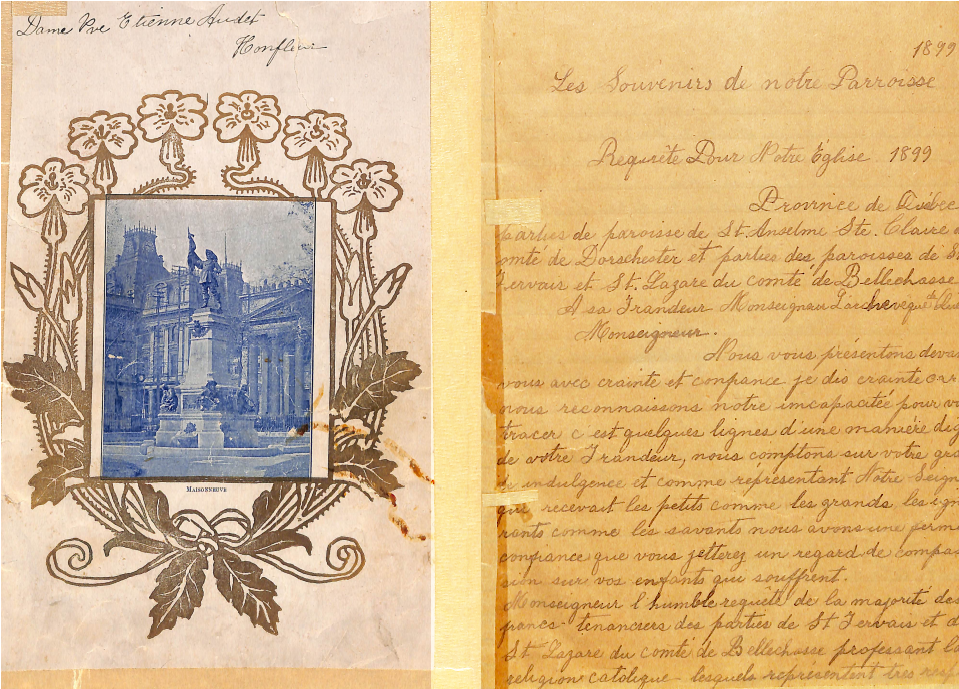 Dame Vve Etienne Audet
Honfleur
MAISONNEUVE
1899
Les Souvenirs de notre Parroisse
Requête Pour Notre Église 1899
Province de Québec
parties de paroisse de St. Anselme Ste. Claire
comté de Dorschester et parties des paroisses de St
Gervais et St. Lazare du comté de Bellechasse
A sa Grandeur Monseignau L'archevequ
Monseigneur.
Nous vous présentons devan
vous avec crainte et confiance je dis crainte car
nous reconnaissons notre imcapacitée pour v
tracer c est quelques lignes d'une manière dig
de votre Grandeur, nous comptons sur votre gra
indulgence et comme représentant Notre Seign
qui recevait les petits comme les grands, les ign
rants comme les savants nous avons une ferme
confiance que vous jetterez un regard de compas
sion sur vos enfants qui souffrent.
Monseigneur l'humble requête de la majorité des
francs-tenanciers des parties de St Gervais et d
St. Lazare du comté de Bellechasse professant la
religion catolique lesquels représentent tres resp